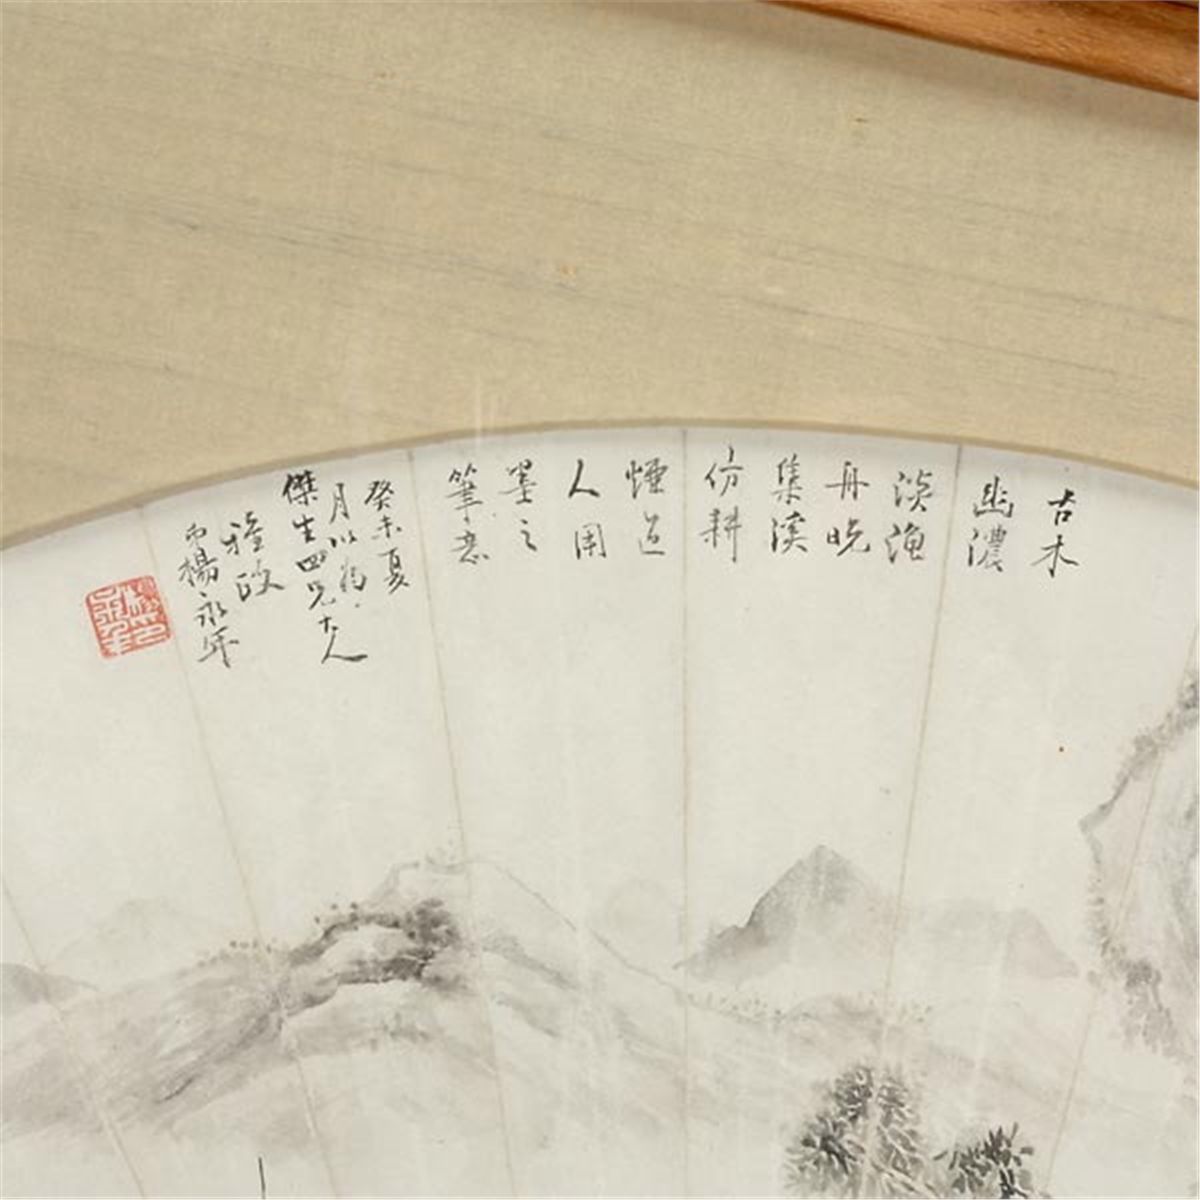 古木
幽濃
淡漁
舟晚
集溪
仿耕
煙道
人用
墨之
筆意
癸未夏
月以為
傑生四兄大人
雅政
弟楊永年